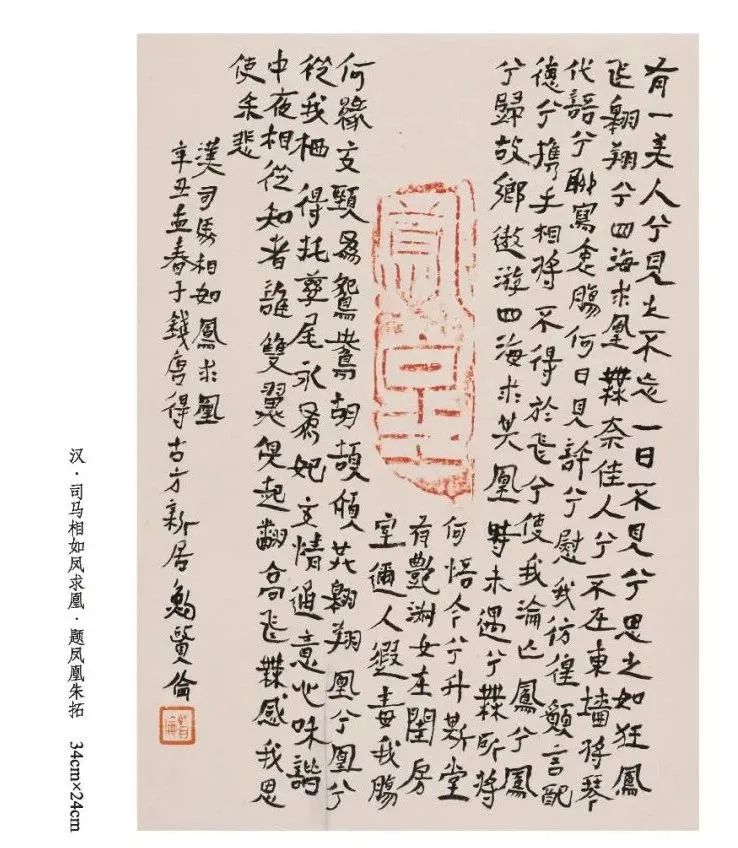 有一美人兮見之不忘一日不見兮思之如狂鳳
飛翱翔兮四海求凰無奈佳人兮不在東墻將琴
代語兮聊寫衷腸何日見許兮慰我彷徨願言配
德兮攜手相將不得於飛兮使我淪亡鳳兮鳳
兮歸故鄉遨游四海求其凰時未遇兮無所將
何悟今兮升斯堂
有艷淑女在閨房
室邇人遐毒我腸
何緣交頸為鴛鴦胡頡頏共翱翔凰兮凰兮
從我栖得托孳尾永為妃交情通意心味諧
中夜相從知者誰雙翼俱起翻高飛無感我思
使余悲
漢司馬相如鳳求凰
辛丑孟春于錢唐得古方新居鮑賢倫
汉·司马相如凤求凰·题凤凰朱拓 34cm×24cm